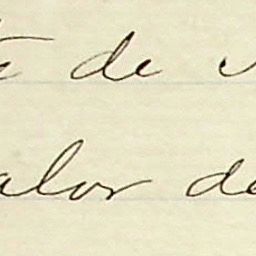 de
alor de